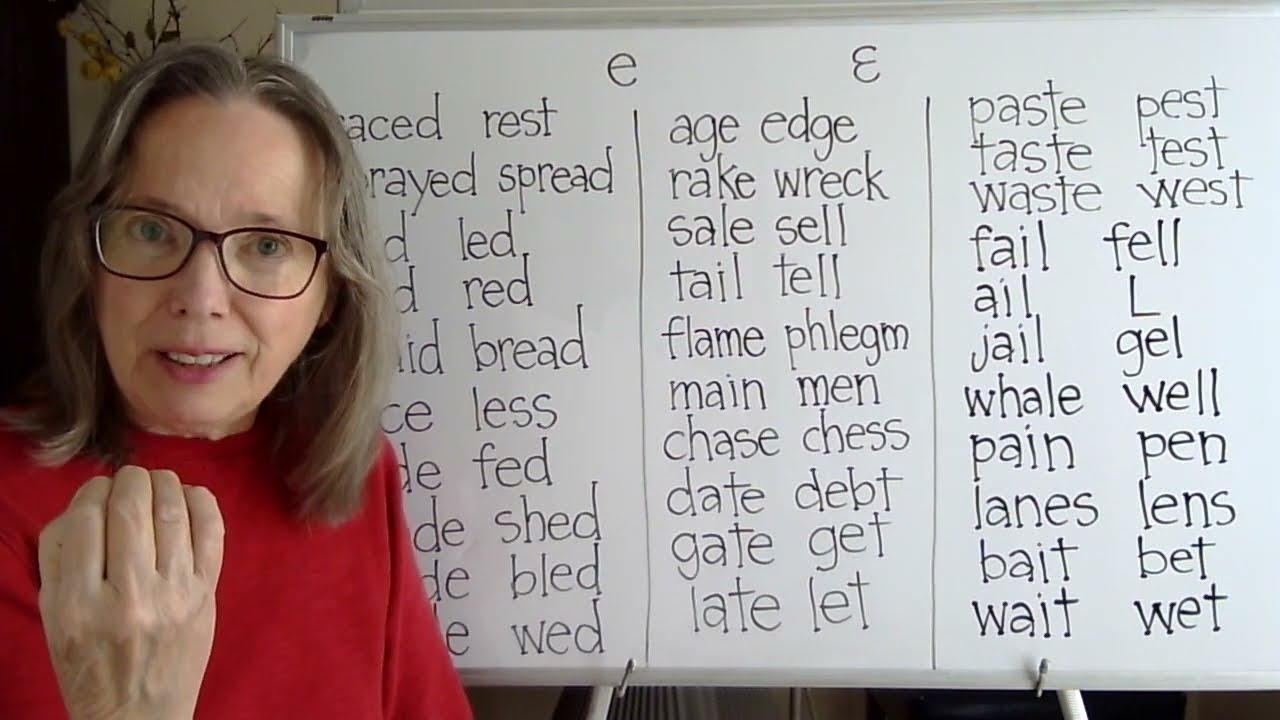 e ɛ
rest
spread
led
red
bread
less
fed
shed
bled
wed
age edge
rake wreck
sale sell
tail tell
flame phlegm
main men
chase chess
date debt
gate get
late let
paste pest
taste test
waste west
fail fell
ail L
jail gel
whale well
pain pen
lanes lens
bait bet
wait wet